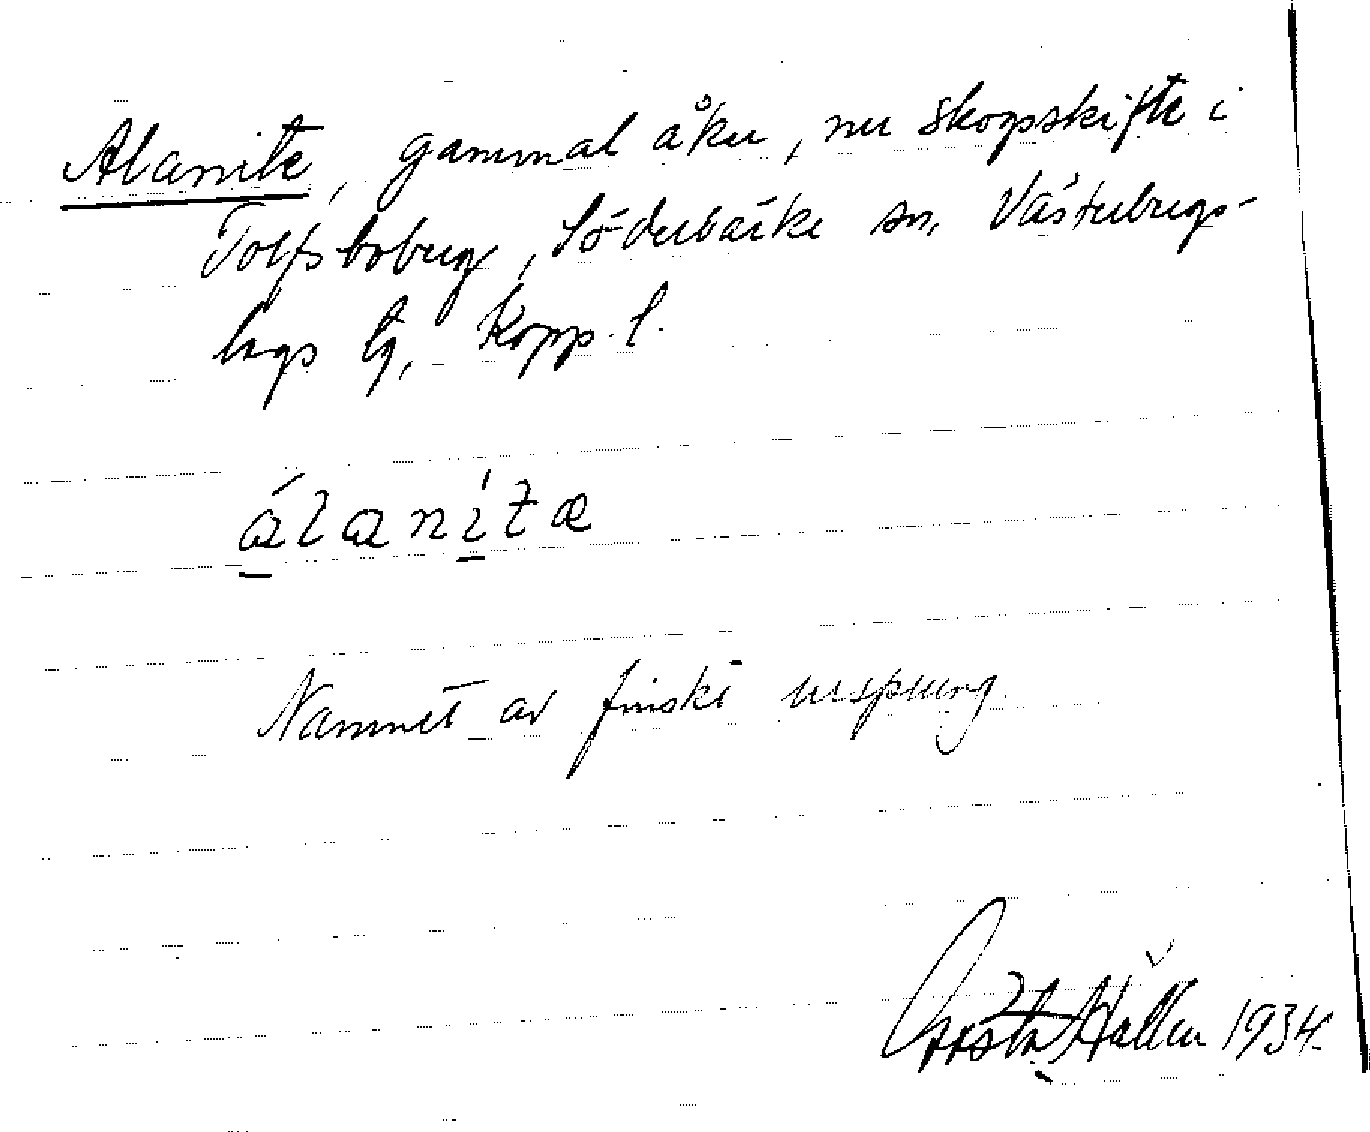 Alanite, gammal åker, nu skogsskifte i
Tolfsboberg, Söderbärke sn, Västerbergs-
lags tg, Kopp. l.
álanítæ
Namnet av finskt ursprung
Gösta Hallén 1934.